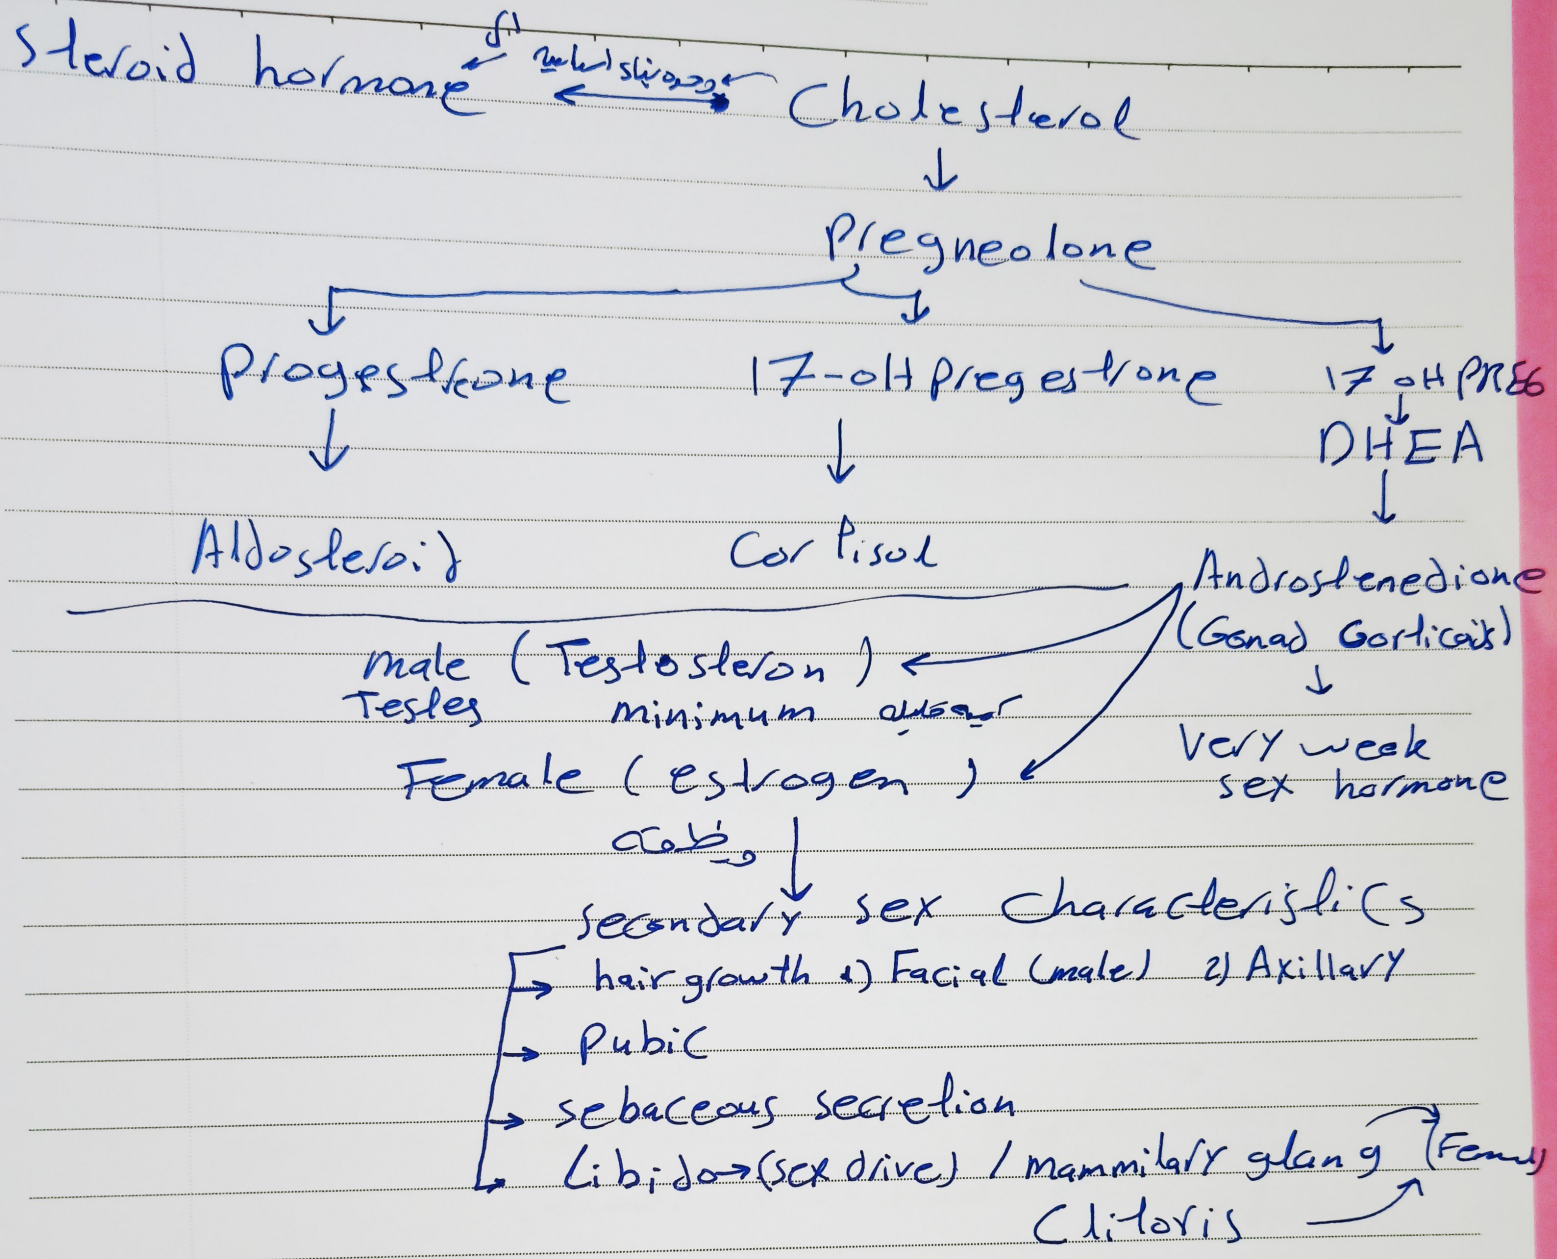 steroid hormone ← وحدة بناء اساسية ← Cholesterol
↓
Pregneolone
Progestreone 17-OH pregestrone 17 OH PREG
↓ ↓ ↓
DHEA
↓
Aldosteroid Cortisol Androstenedione
(Gonad Corticoids)
male (Testosteron) ←
↓
Testes minimum كمية قليلة
Very weak
Female (estrogen)
sex hormone
وظيفته ↓
secondary sex characteristics
→ hair growth 1) Facial (male) 2) Axillary
→ Pubic
→ sebaceous secretion
→ Libido → (sex drive) / mammilary gland → (Female)
Clitoris →